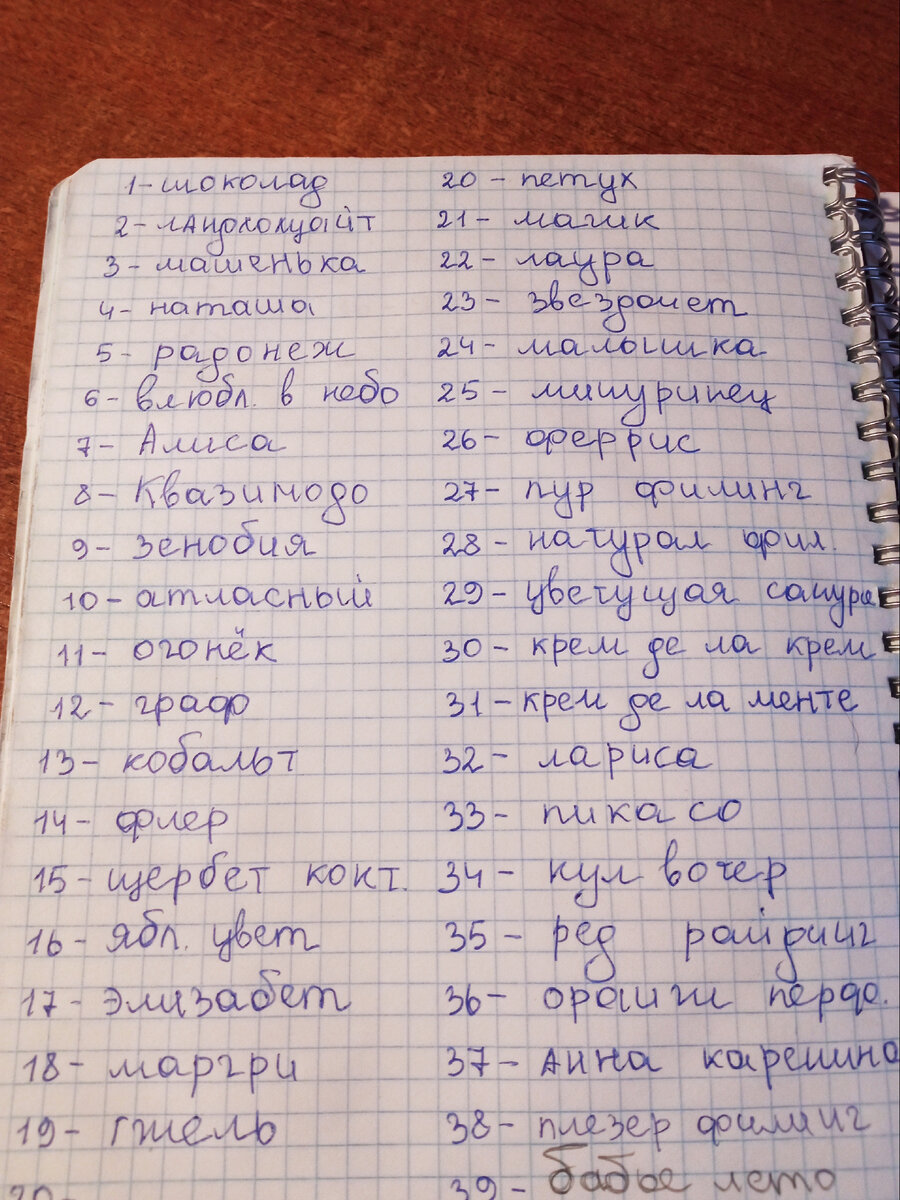 1-шоколад
2-ландхолцайт
3-машенька
4-наташа
5-радонеж
6-влюбл. в небо
7-Алиса
8-Квазимодо
9-зенобия
10-атласный
11-огонёк
12-граф
13-кобальт
14-флер
15-щербет кокт.
16-ябл. цвет
17-элизабет
18-маргри
19-гжель
20-петух
21-магик
22-лаура
23-звездочет
24-малышка
25-мичуринец
26-феррис
27-пур филинг
28-натурал фил.
29-цветущая сакура
30-крем де ла крем
31-крем де ла менте
32-лариса
33-пикасо
34-кул вочер
35-ред райдинг
36-оранж перфе.
37-Анна каренина
38-плезер филинг
39-бабье лето